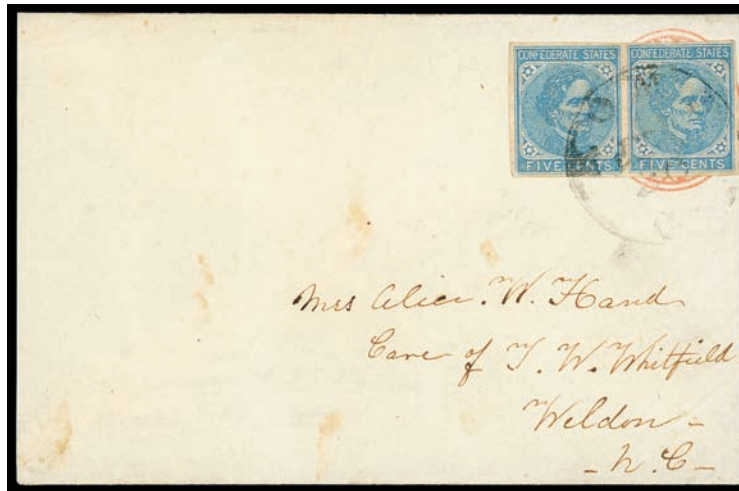 CONFEDERATE STATES CONFEDERATE STATES
FIVE CENTS FIVE CENTS
Mrs Alice. W. Hand
Care of T. W. Whitfield
Weldon -
- N. C -